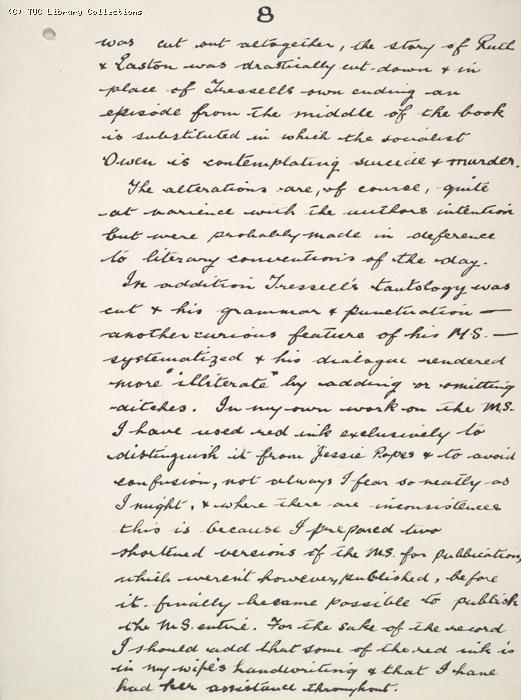 (C) TUC Library Collections
8
was cut out altogether, the story of Ruth
& Easton was drastically cut down & in
place of Tressell's own ending an
episode from the middle of the book
is substituted in which the socialist
Owen is contemplating suicide & murder.
The alterations are, of course, quite
at varience with the authors intention
but were probably made in deference
to literary conventions of the day.
In addition Tressell's tautology was
cut & his grammar & punctuation —
another curious feature of his MS. —
systematized & his dialogue rendered
more "illiterate" by adding or omitting
aitches. In my own work on the MS.
I have used red ink exclusively to
distinguish it from Jessie Popes & to avoid
confusion, not always I fear so neatly as
I might, & where there are inconsistences
this is because I prepared two
shortened versions of the MS. for publication,
which weren't however, published, before
it finally became possible to publish
the MS. entire. For the sake of the record
I should add that some of the red ink is
in my wife's handwriting & that I have
had her assistance throughout.